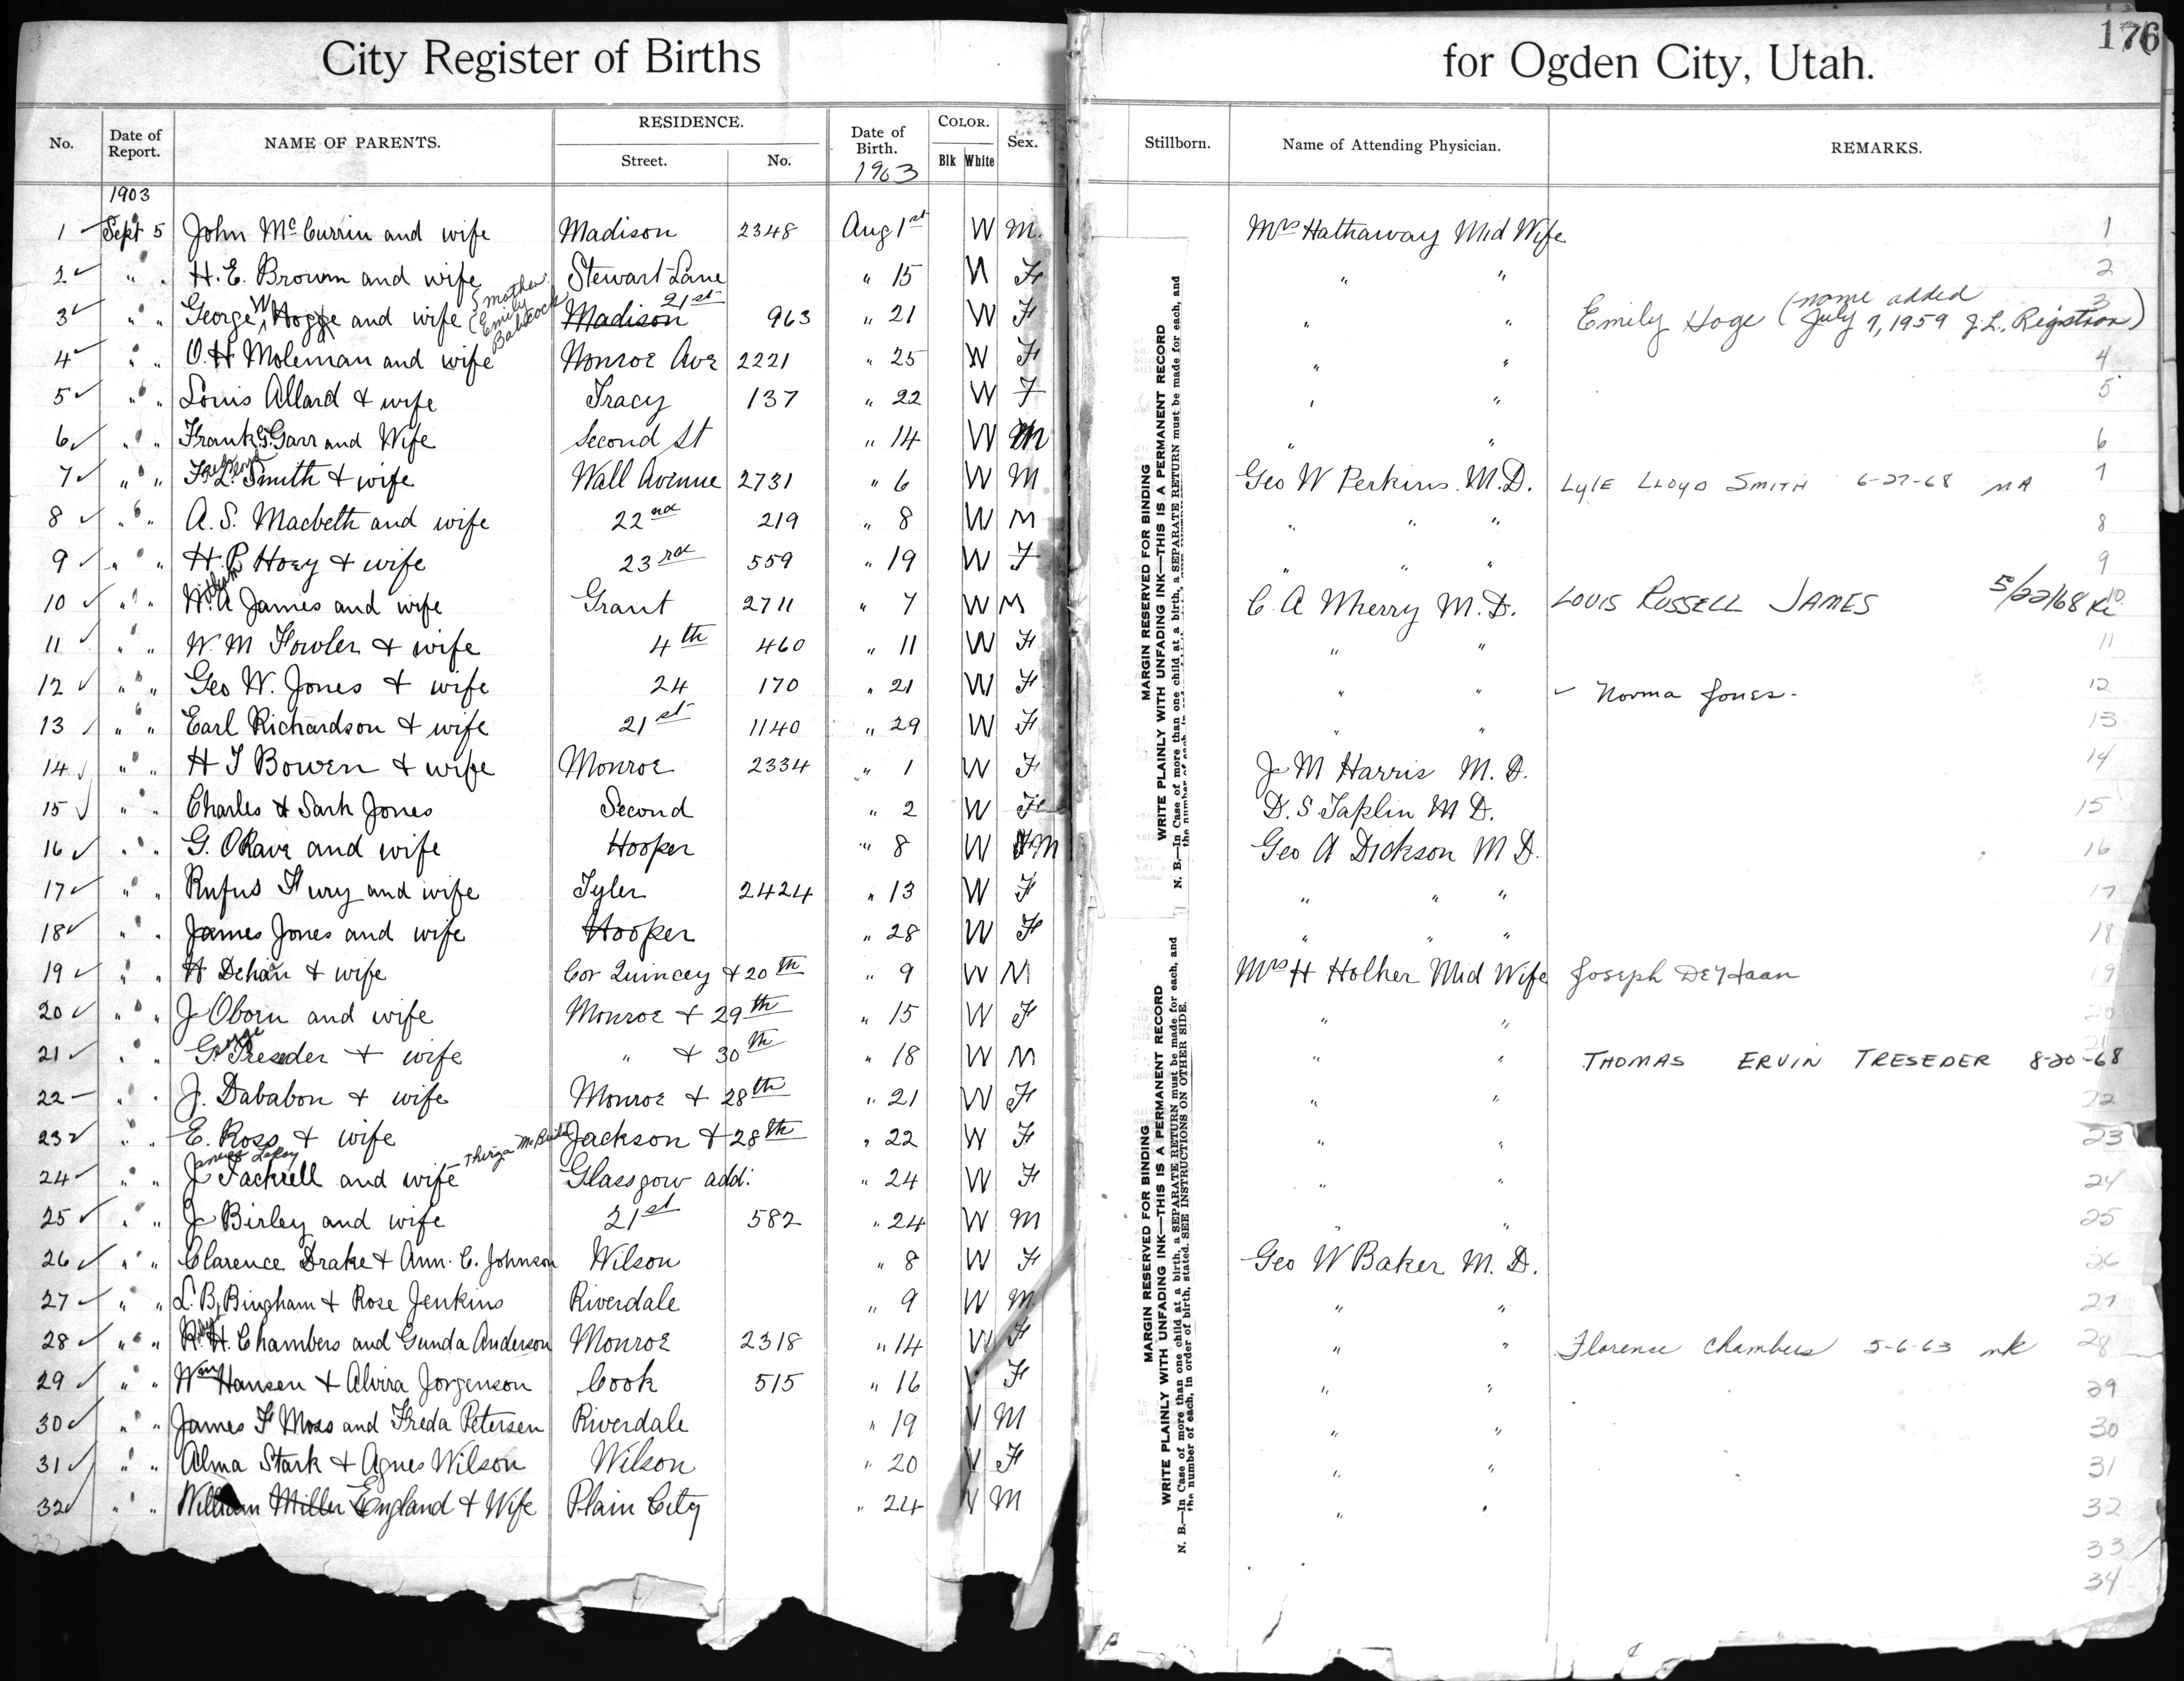 176
City Register of Births for Ogden City, Utah.
No. Date of Report. NAME OF PARENTS. RESIDENCE. Street. No. Date of Birth. 1903 COLOR. Blk White Sex. Stillborn. Name of Attending Physician. REMARKS.
1903
1 Sept 5 John McCurrin and wife Madison 2348 Aug 1st W M. Mrs Hathaway Mid Wife 1
2 " " H. E. Brown and wife Stewart Lane " 15 W F " " 2
3 " " George W Hogge and wife (mother Emily Babcock Madison 21st 963 " 21 W F " " Emily Hoge (name added July 7, 1959 J.L., Registrar) 3
4 " " O. H Moleman and wife Monroe Ave 2221 " 25 W F " " 4
5 " " Louis Allard & wife Tracy 137 " 22 W F " " 5
6 " " Frank G. Garr and Wife Second St " 14 W M " " 6
7 " " F. L. Smith & wife Wall Avenue 2731 " 6 W M Geo W Perkins. M.D. LYLE LLOYD SMITH 6-27-68 MA 7
8 " " A. S. Macbeth and wife 22nd 219 " 8 W M " " " 8
9 " " H. P. Hoey & wife 23rd 559 " 19 W F " " " 9
10 " " William A James and wife Grant 2711 " 7 W M C. A Wherry M.D. LOUIS RUSSELL JAMES 5/22/68 10
11 " " W. M Fowler & wife 4th 460 " 11 W F " " 11
12 " " Geo W. Jones & wife 24 170 " 21 W F " " Norma Jones - 12
13 " " Earl Richardson & wife 21st 1140 " 29 W F " " 13
14 " " H J Bowen & wife Monroe 2334 " 1 W F J M Harris M. D. 14
15 " " Charles & Sarh Jones Second " 2 W F D. S. Taplin M D. 15
16 " " G. ORave and wife Hooper " 8 W M Geo A Dickson M D. 16
17 " " Rufus Fury and wife Tyler 2424 " 13 W F " " " 17
18 " " James Jones and wife Hooper " 28 W F " " " 18
19 " " H Dehan & wife Cor Quincey & 20th " 9 W M Mrs H Holher Mid Wife Joseph DeHaan 19
20 " " J Oborn and wife Monroe & 29th " 15 W F " " 20
21 " " George Treseder & wife " & 30th " 18 W M " " THOMAS ERVIN TRESEDER 8-20-68
22 " " J. Dababon & wife Monroe & 28th " 21 W F " " 22
23 " " E. Ross & wife Jackson & 28th " 22 W F " " 23
24 " " James LeRoy J Tackrell and wife Thirza McBride Glassgow add: " 24 W F " " 24
25 " " J Birley and wife 21st 582 " 24 W M " " 25
26 " " Clarence Drake & Ann. C. Johnson Wilson " 8 W F Geo W Baker M. D. 26
27 " " L. B. Bingham & Rose Jenkins Riverdale " 9 W M. " " 27
28 " " R. H. Chambers and Gunda Anderson Monroe 2318 " 14 W F " " Florence Chambers 5-6-63 mk 28
29 " " Wm Hansen & Alvira Jorgenson Cook 515 " 16 W F " " 29
30 " " James F Moss and Freda Petersen Riverdale " 19 W M " " 30
31 " " Alma Stark & Agnes Wilson Wilson " 20 W F " " 31
32 " " William Miller England & Wife Plain City " 24 W M " " 32
33 33
34
MARGIN RESERVED FOR BINDING
WRITE PLAINLY WITH UNFADING INK—THIS IS A PERMANENT RECORD
N. B.—In Case of more than one child at a birth, a SEPARATE RETURN must be made for each, and
the number of each in
MARGIN RESERVED FOR BINDING
WRITE PLAINLY WITH UNFADING INK—THIS IS A PERMANENT RECORD
N. B.—In Case of more than one child at a birth, a SEPARATE RETURN must be made for each, and
the number of each, in order of birth, stated. SEE INSTRUCTIONS ON OTHER SIDE.